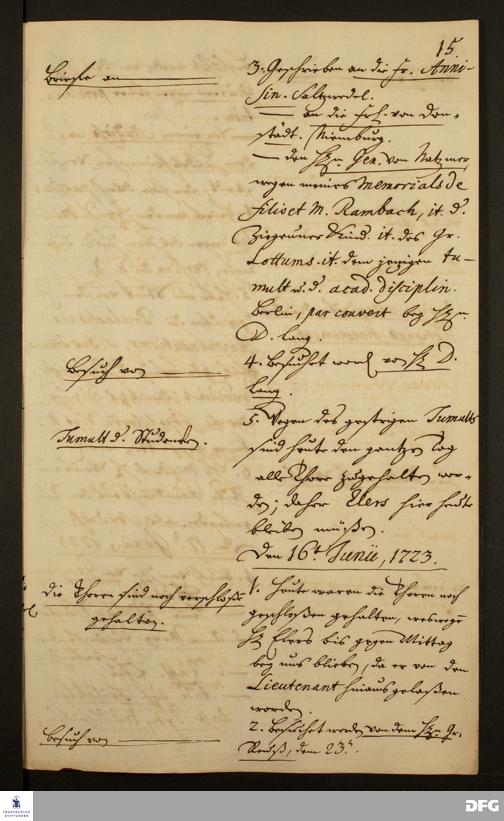 15.
Briefe an
3. Geschrieben an die Fr. Anni-
sin. Saltzwedel.
— an die Frl. von Dan-
städt. Nienburg.
— den H. Gen. von Natzmer,
wegen meines Memorials de
filio et M. Rambach, it. d.
Ziegeuner Kind. it. des Gr.
Lottums. it. dem jezigen tu-
mult u. d. acad. disciplin.
Berlin, par couvert bey H.
D. Lang.
Besuch von
4. Besuchet word von H. D.
Lang.
Tumult d. Studenten.
5. Wegen des gestrigen Tumults
sind heute den gantzen Tag
alle Thore zugehalten wor-
den; daher Elers hier heute
bleiben müßen.
Den 16t. Junii, 1723.
die Thoren sind noch verschloß
gehalten.
1. Heute waren die Thoren noch
geschloßen gehalten, weswegen
H. Elers bis gegen Mittag
bey uns blieben, da er von dem
Lieutenant hinaus gelaßen
worden.
Besuch von
2. Besuchet worden von dem H. Gr.
Reuß, dem 23.
FRANCKESCHE STIFTUNGEN
DFG